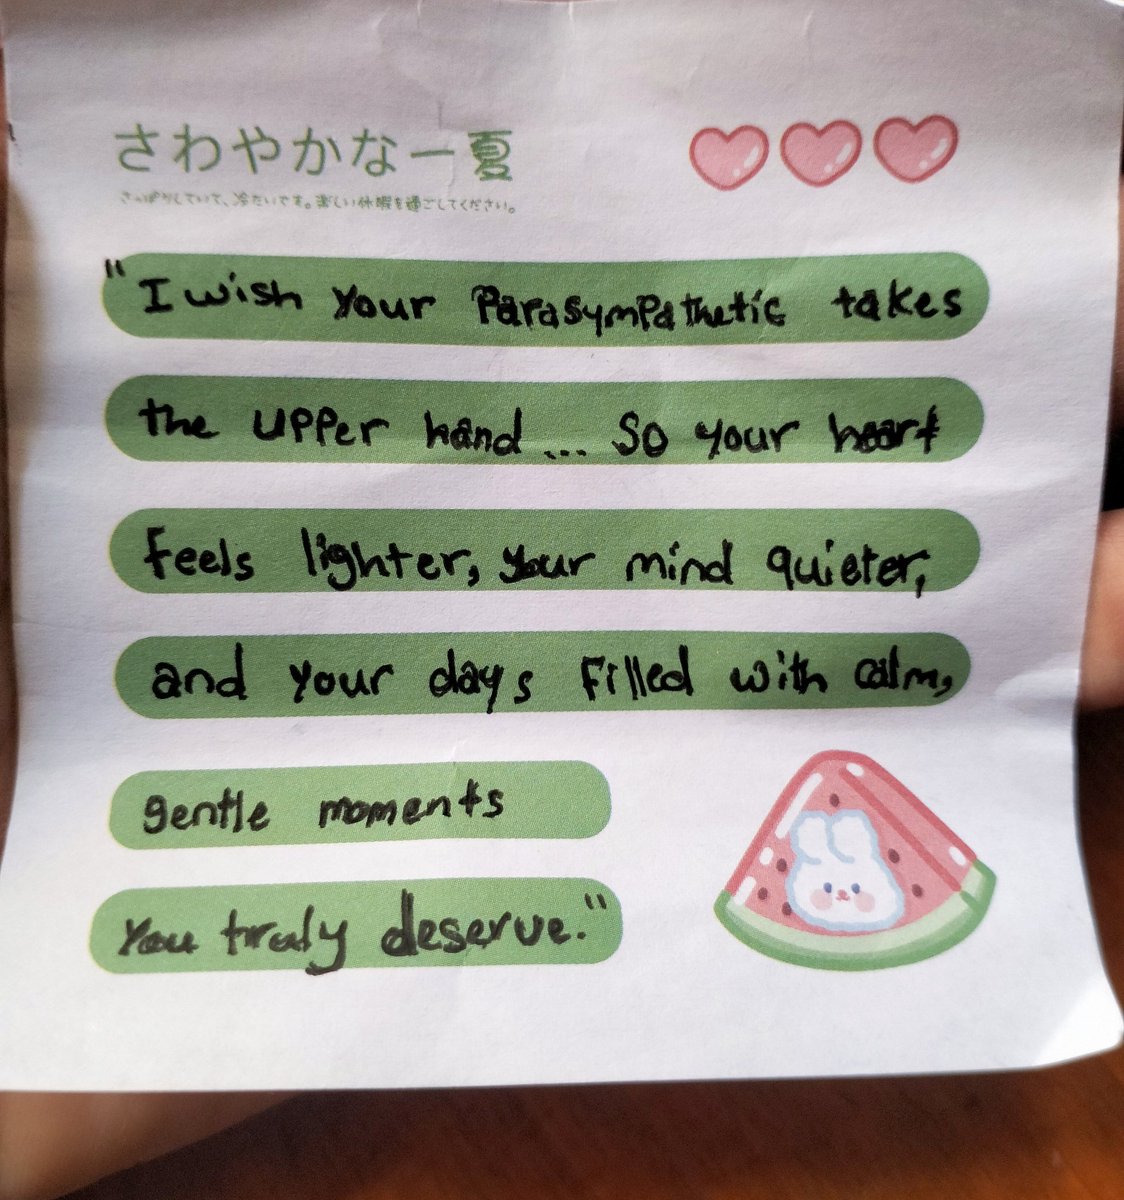 さわやかな一夏
さっぱりしていて、冷たいです。楽しい休暇を過ごしてください。
"I wish your Parasympathetic takes
the upper hand... So your heart
feels lighter, your mind quieter,
and your days filled with calm,
gentle moments
You truly deserve."